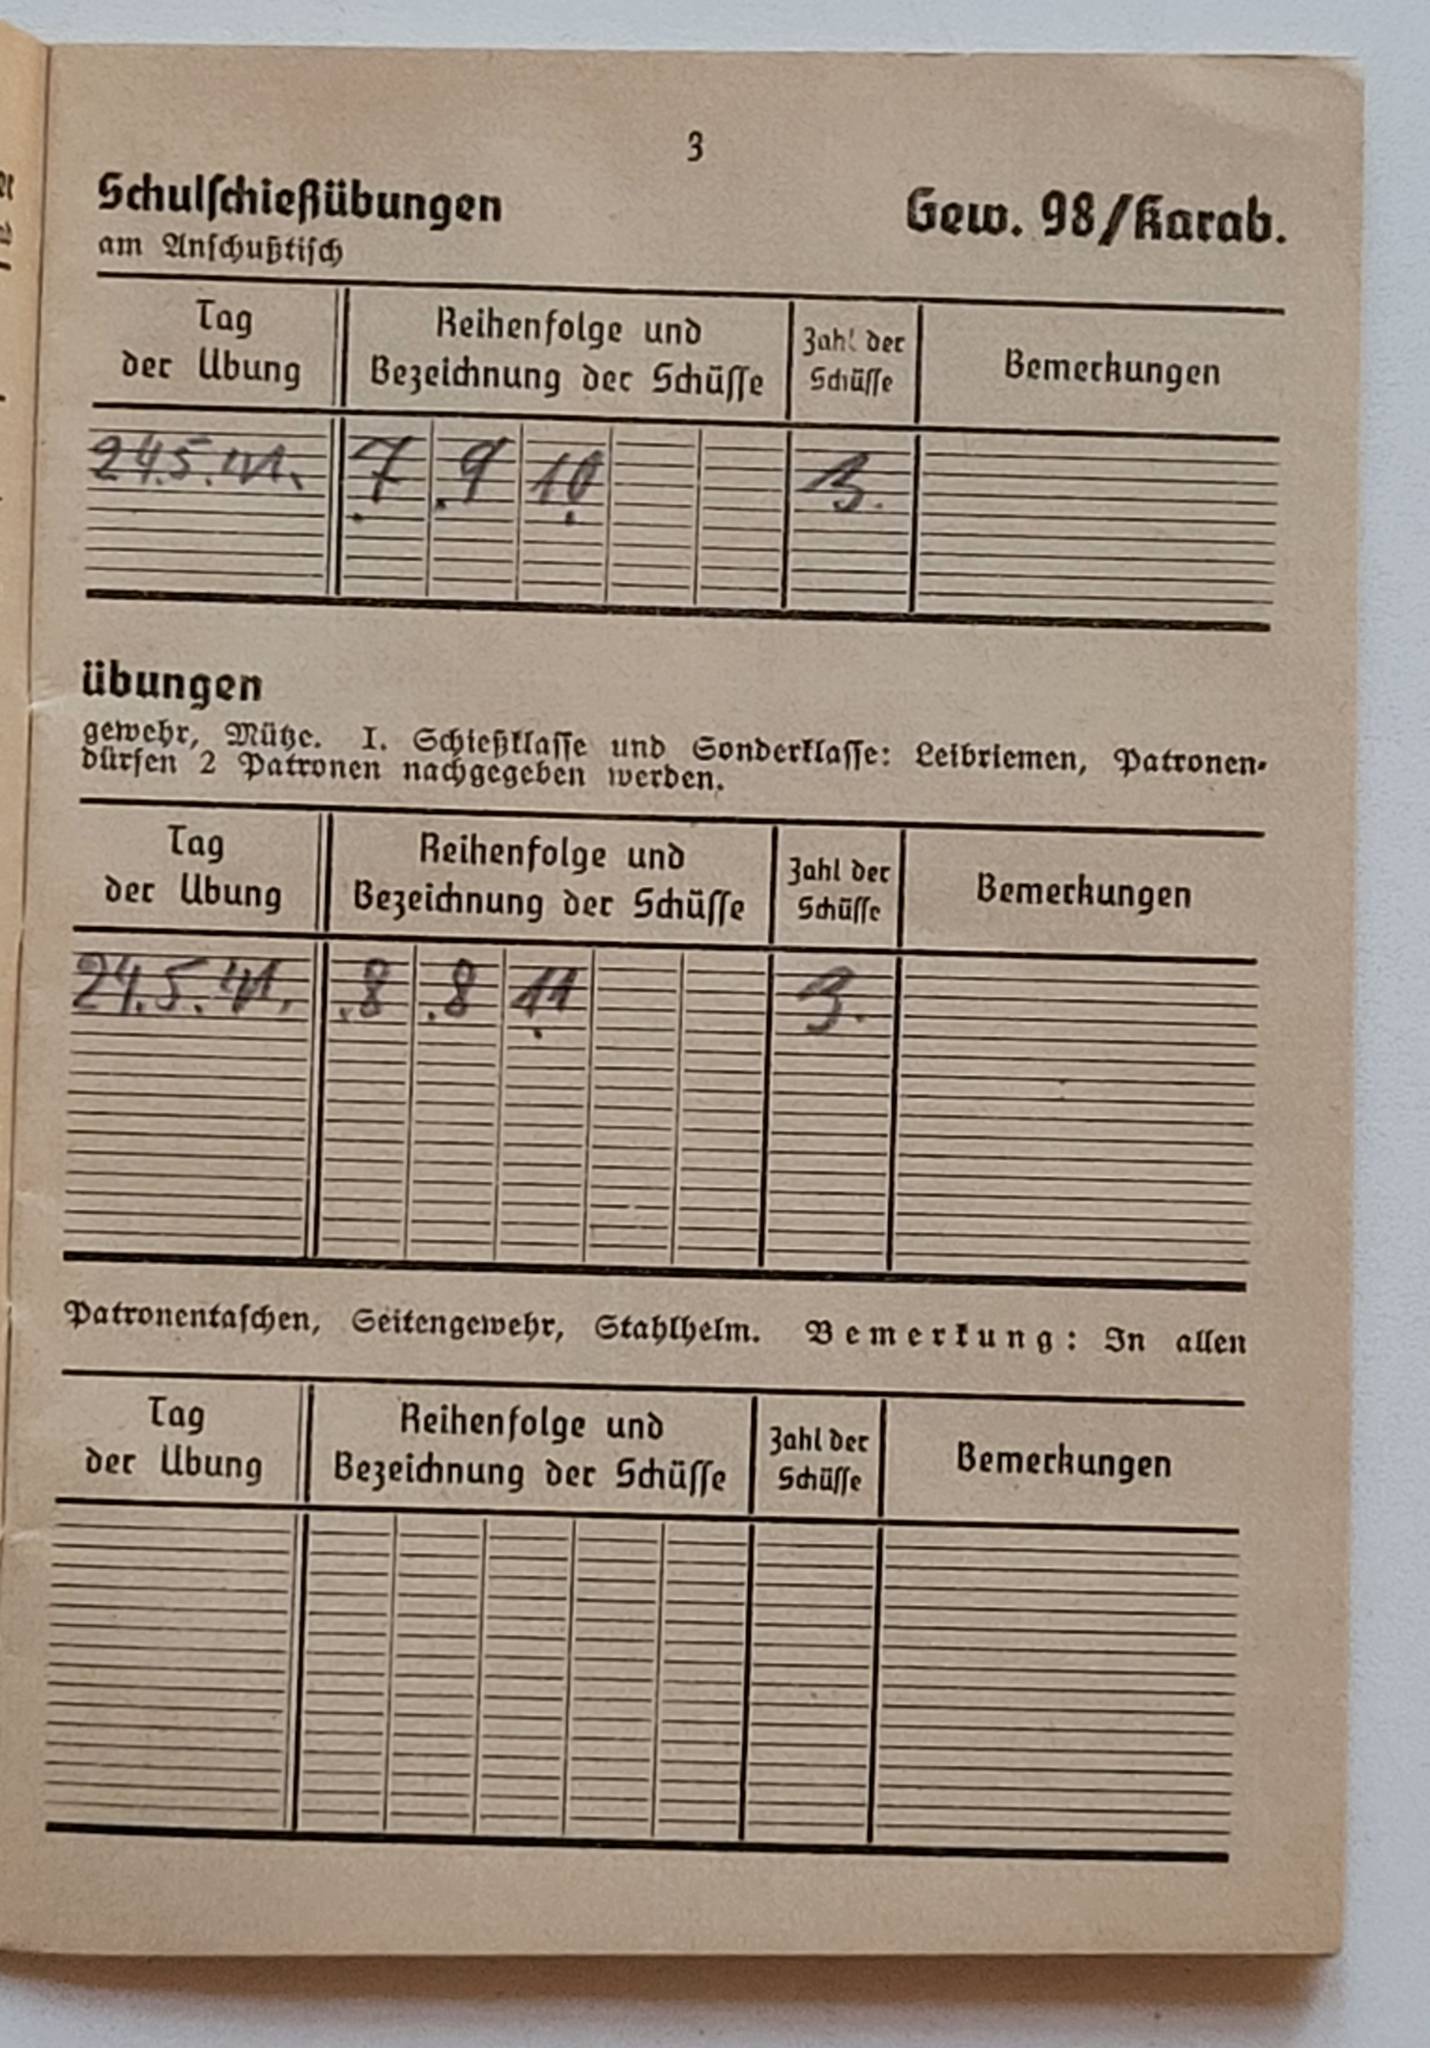 3
Schulſchießübungen Gew. 98/Karab.
am Anſchußtiſch
Tag
der Übung
Reihenfolge und
Bezeichnung der Schüſſe
Zahl der
Schüſſe
Bemerkungen
24.5.41. .7 .9 10. 3.
übungen
gewehr, Mütze. I. Schießklaſſe und Sonderklaſſe: Leibriemen, Patronen-
dürfen 2 Patronen nachgegeben werden.
Tag
der Übung
Reihenfolge und
Bezeichnung der Schüſſe
Zahl der
Schüſſe
Bemerkungen
24.5.41. .8 .8 11. 3.
Patronentaſchen, Seitengewehr, Stahlhelm. Bemerkung: In allen
Tag
der Übung
Reihenfolge und
Bezeichnung der Schüſſe
Zahl der
Schüſſe
Bemerkungen